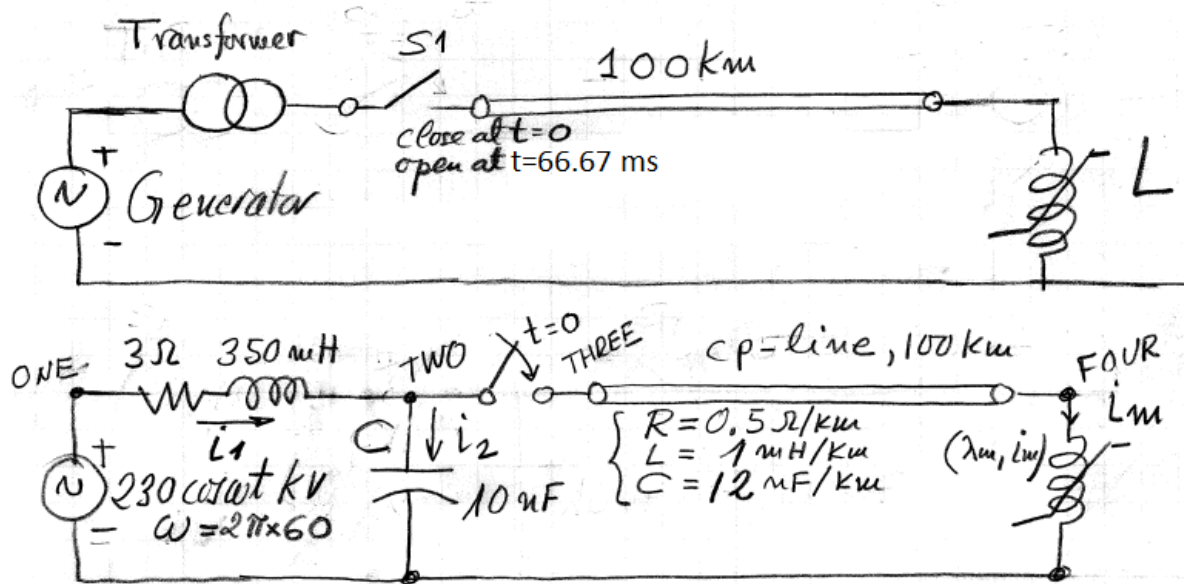 Transformer
S1
100km
close at t=0
open at t=66.67 ms
+
N
Generator
-
L
ONE
3Ω 350 mH
TWO
t=0
THREE
cp-line, 100km
FOUR
i1
C
i2
im
(λm, im)
+
N
230 cosωt kV
ω=2π×60
-
10 nF
R=0.5 Ω/km
L= 1 mH/km
C=12 nF/km